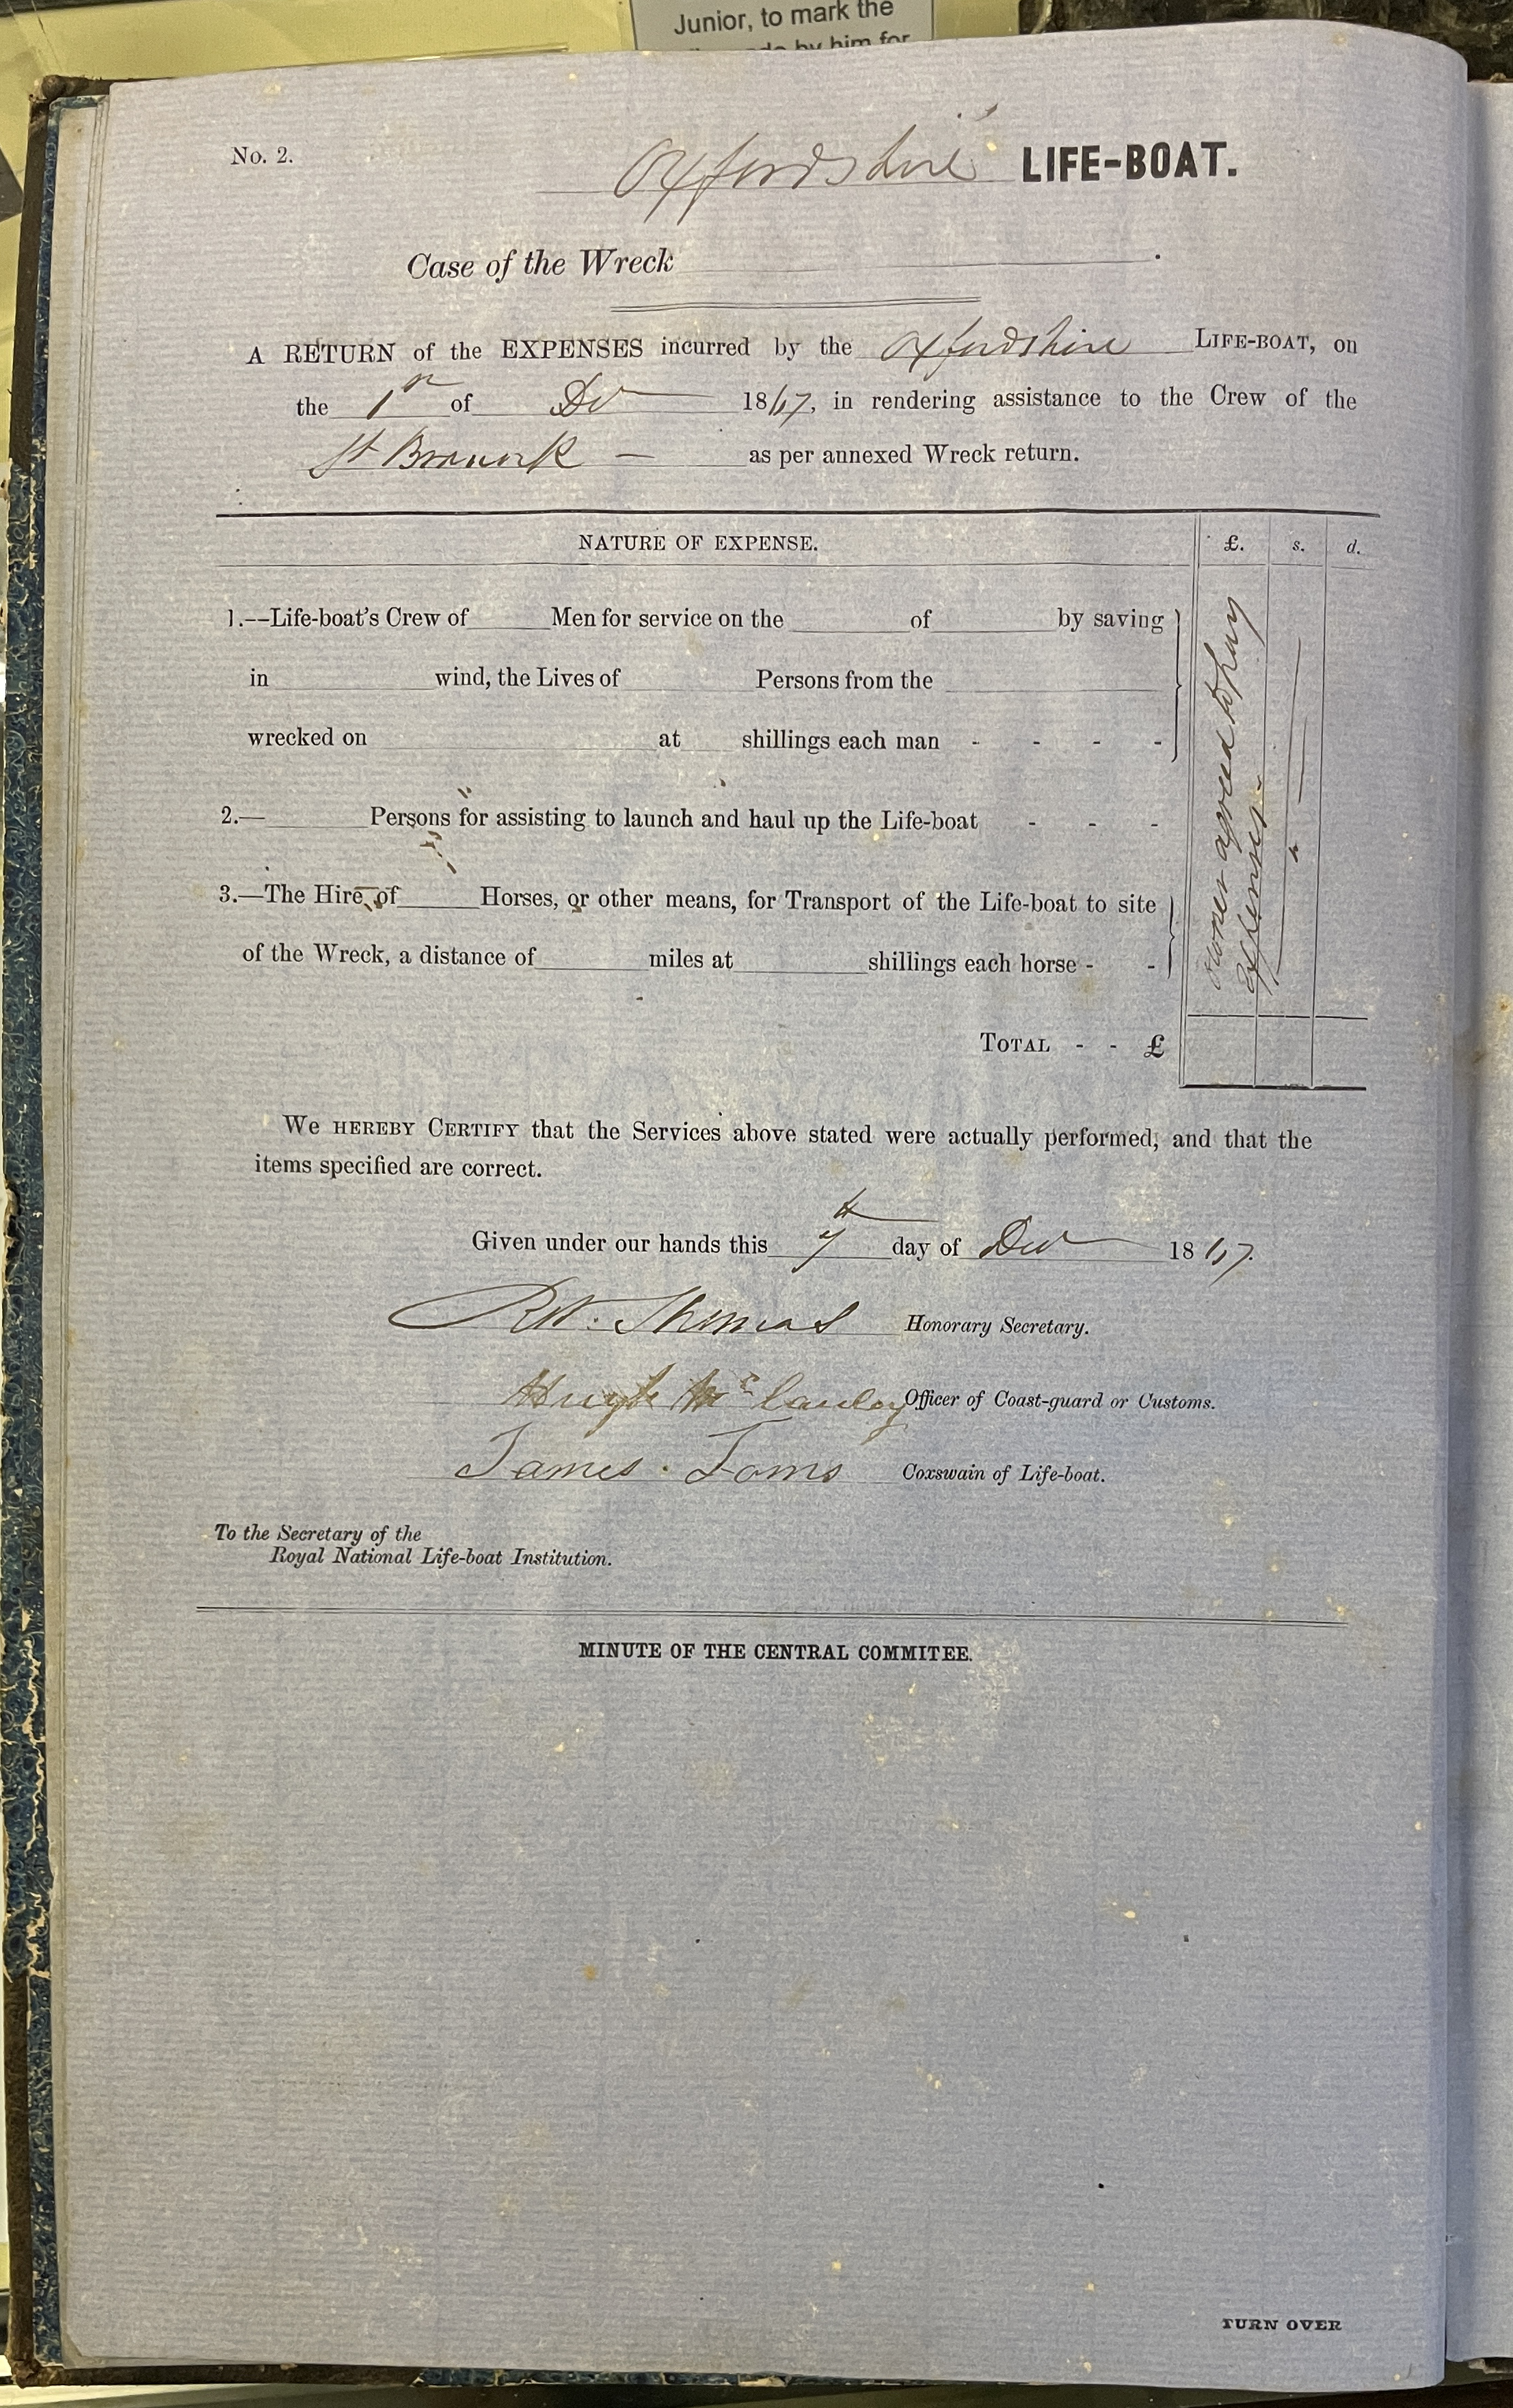 Junior, to mark the
by him for
No. 2.
Oxfordshire LIFE-BOAT.
Case of the Wreck .
A RETURN of the EXPENSES incurred by the Oxfordshire LIFE-BOAT, on
the 1st of Dec 1867, in rendering assistance to the Crew of the
St as per annexed Wreck return.
NATURE OF EXPENSE. £. s. d.
1.—Life-boat's Crew of Men for service on the of by saving
in wind, the Lives of Persons from the
wrecked on at shillings each man - - - -
2.— Persons for assisting to launch and haul up the Life-boat - - -
3.—The Hire of Horses, or other means, for Transport of the Life-boat to site
of the Wreck, a distance of miles at shillings each horse - -
owner agreed to pay
expenses
TOTAL - - £
We HEREBY CERTIFY that the Services above stated were actually performed, and that the
items specified are correct.
Given under our hands this 7th day of Dec 1867.
Thomas Honorary Secretary.
Hugh McCauley Officer of Coast-guard or Customs.
James Toms Coxswain of Life-boat.
To the Secretary of the
Royal National Life-boat Institution.
MINUTE OF THE CENTRAL COMMITEE.
TURN OVER